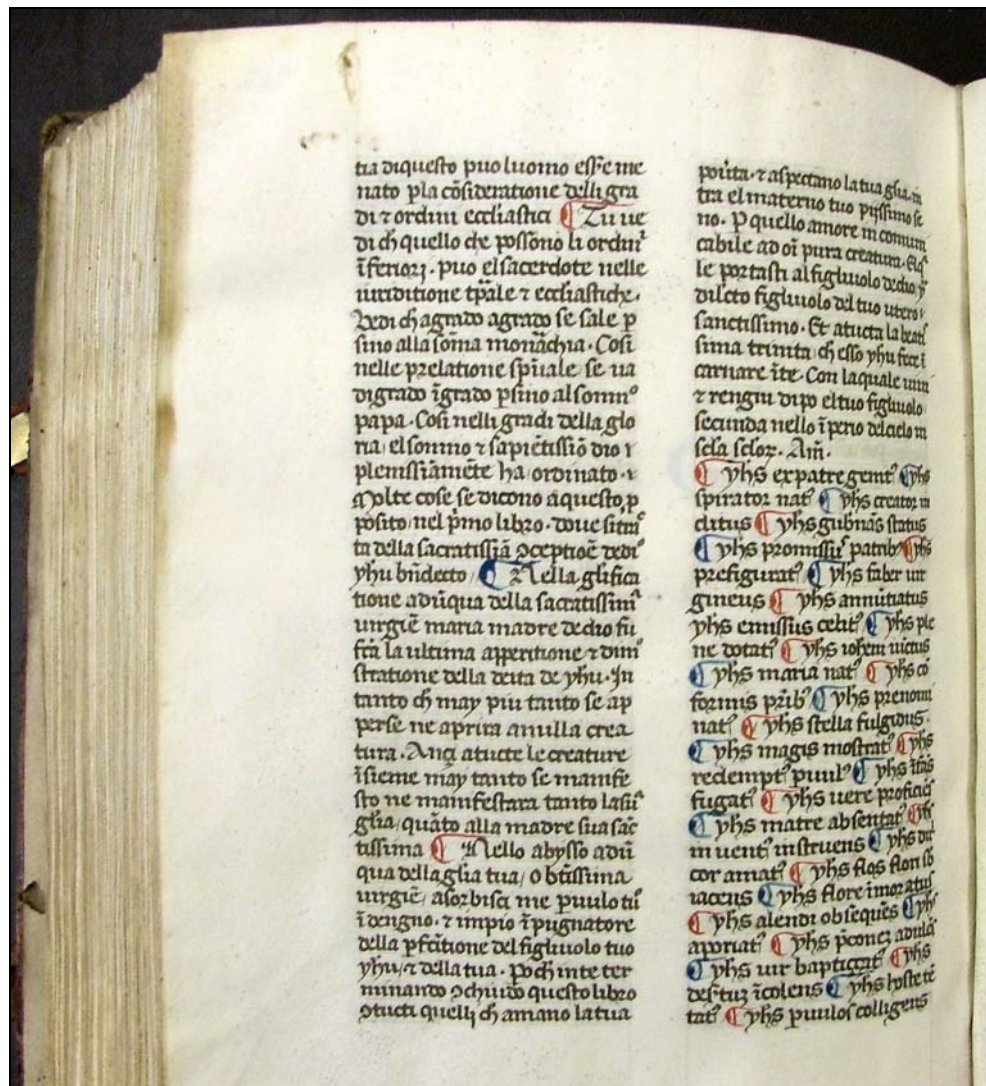 tia di questo puo luomo esse me
nato p̱ la cõsideratione delli gra
di ⁊ ordini eccliastici ¶ Tu ue
di ch̄ quello che possono li ordinⁱ
ĩferiori · puo el sacerdote nelle
iuriditione tp̄ale ⁊ eccliastiche ·
Vedi ch̄ agrado agrado se sale p̱
sino alla som̄a monãchia · Cosi
nelle prelatione sp̄uale se ua
digrado ĩgrado p̱sino al somm°
papa · Cosi nelli gradi della glo
ria / el sommo ⁊ sapiẽtissiõ dio
plenissiãmẽte ha / ordinato ·
Molte cose se dicono a questo p̱
posito / nel p̄mo libro · doue si tra
ta della sacratissĩa ↄceptioẽ de di°
yhu bñdecto / ¶ Nella gl̄ifica
tione adũqua della sacratissimᵃ
uirgiẽ maria madre de dio fu
fc̄a la ultima apperitione ⁊ dim°
stratione della deita de yhu · In
tanto ch̄ may piu tanto se ap
perse ne aprira a nulla crea
tura · Anci a tucte le creature
ĩsieme may tanto se manife
sto ne manifestara tanto la suᵃ
gl̄ia / quãto alla madre sua sãc
tissima ¶ Nello abysso adũ
qua della gl̄ia tua / o btĩssima
uirgiẽ / asorbisci me p̱uulo tu°
ĩdengno · ⁊ impio ĩpugnatore
della p̱fc̄tione del figliuolo tuo
yhu / ⁊ della tua · p̱och̄ in te ter
minando ↄchiudo questo libro
ↄ tucti quelli ch̄ amano la tua
⁊ aspectano la tua gl̄ia ·
tra el materno tuo pijssimo se
no · P̱ quello amore in comuni
cabile ad oĩ pura creatura ·
le portasti al figliuolo de dio ⁊
dilc̄to figliuolo del tuo utero
sanctissimo · Et a tucta la beatis
sima trinita / ch̄ esso yhu fece ĩ
carnare ĩ te · Con la quale uiui
⁊ rengni dipo el tuo figliuolo
secunda nello ĩperio del cielo in
sc̄la sc̄lor̄ · Am̄ ·
¶ yhs ex patre genit⁹ ¶ yhs
spirator nat⁹ ¶ yhs creator in
clitus ¶ yhs gub̄nãs status
¶ yhs promissu⁹ patrib⁹ ¶ yhs
prefigurat⁹ ¶ yhs faber uir
gineus ¶ yhs annũtiatus
yhs emissus celit⁹ ¶ yhs ple
ne dotat⁹ ¶ yhs ioh̄em uictus
¶ yhs maria nat⁹ ¶ yhs cõ
formis pr̄ib⁹ ¶ yhs prenomi
nat⁹ ¶ yhs stella fulgidus ·
¶ yhs magis mostrat⁹ ¶ yhs
redempt⁹ puul⁹ ¶ yhs ĩfãs
fugat⁹ ¶ yhs uere proficiẽs
¶ yhs matre absentat⁹ ¶ yhs
inuent⁹ instruens ¶ yhs
cor amat⁹ ¶ yhs flos flori sb̄
iacens ¶ yhs flore ĩmoratus
¶ yhs alendi obsequẽs ¶ yhs
aporiat⁹ ¶ yhs
¶ yhs uir bapticcat⁹ ¶ yhs
ĩcolens ¶ yhs hoste tẽ
tat⁹ ¶ yhs p̱uulos colligens